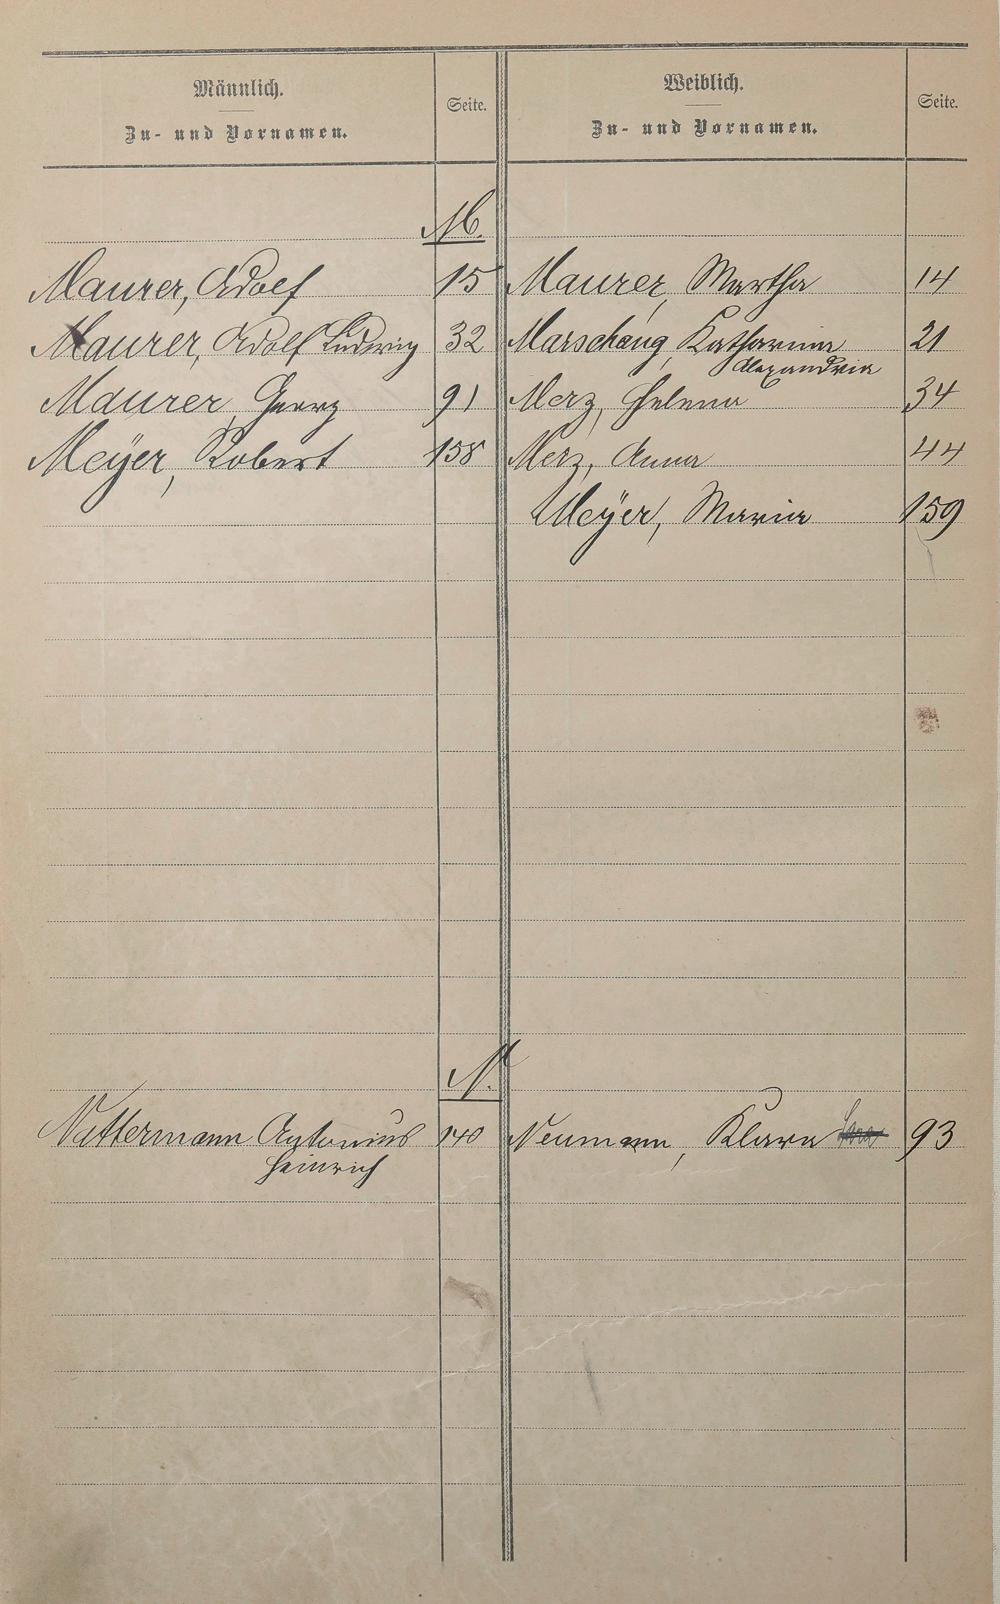 Männlich.
Zu- und Vornamen.
Seite.
Weiblich.
Zu- und Vornamen.
Seite.
M.
Maurer, Adolf 15 Maurer, Martha 14
Maurer, Adolf Ludwig 32 Marschang, Katharina 21
Alexandria
Maurer, Georg 91 Merz, Helena 34
Meÿer, Robert 158 Merz, Anna 44
Meÿer, Maria 159
N.
Nattermann Antonius 140 Neumann, Klara 93
Heinrich